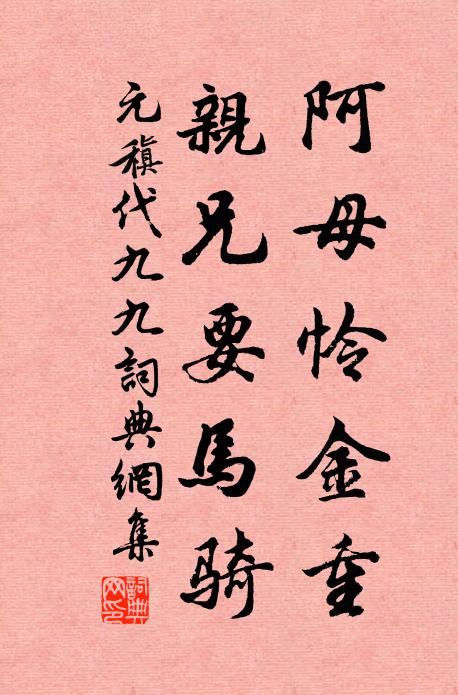 阿母怜金重
親兄要馬騎
元稹代九九詞典網集
詞典
网印